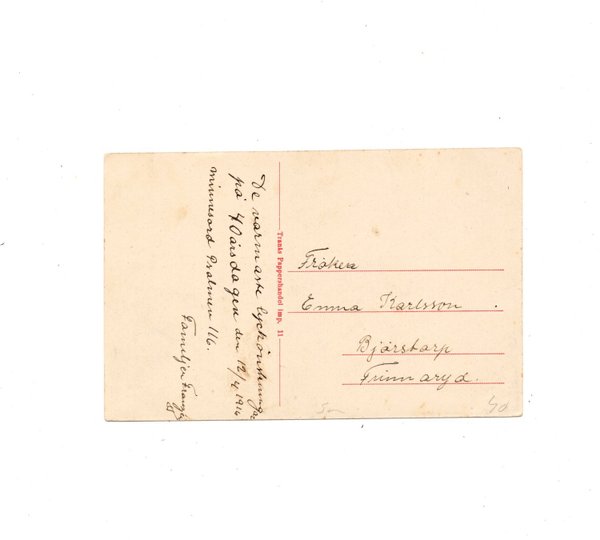 De varmaste lyckönskningar
på 40 årsdagen den 12/4 1916
minnesord Psalmen 116.
Familjen
Tranås Pappershandel imp. 11
Fröken
Emma Karlsson.
Björstorp
Frinnaryd.
50